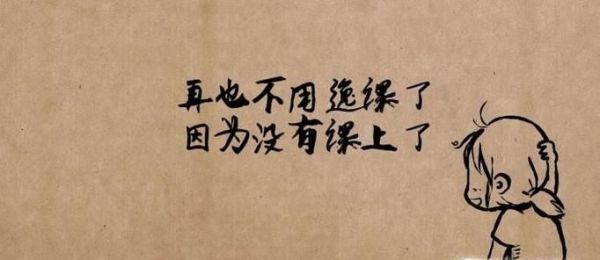 再也不用逃课了
因为没有课上了